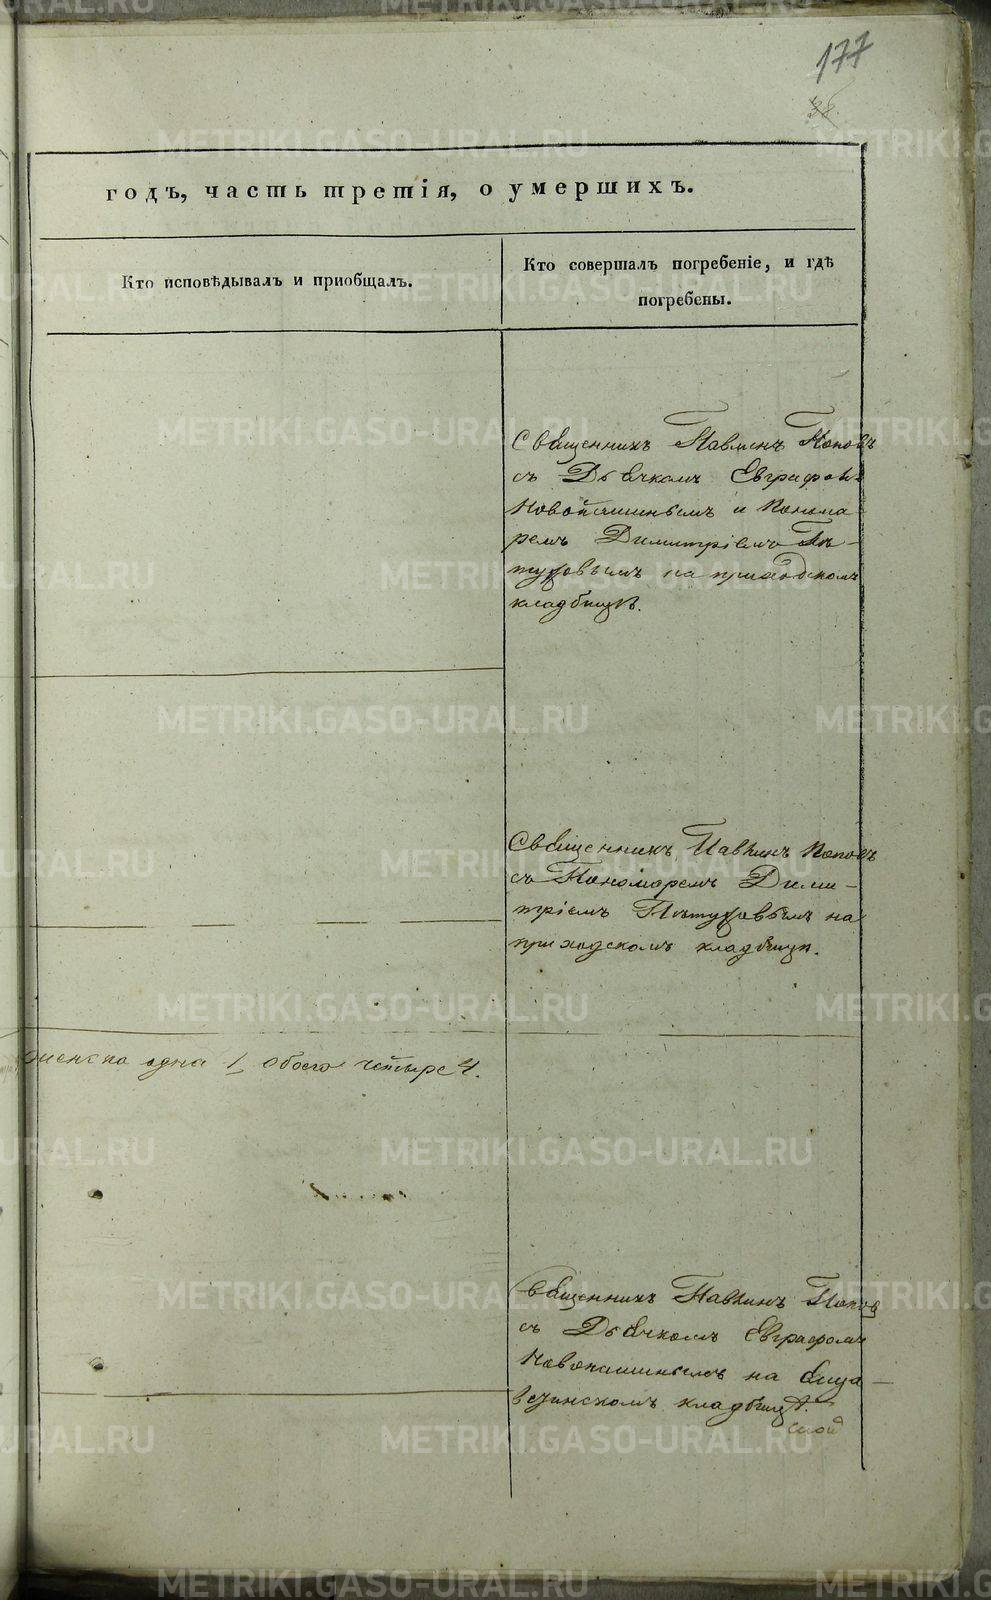 177
38.
годъ, часть третія, о умершихъ.
Кто исповѣдывалъ и приобщалъ.
Кто совершалъ погребеніе, и гдѣ
погребены.
Священникъ Павлинъ Поповъ
съ Дьячкомъ Евграфомъ
Новопашинымъ и Понома-
ремъ Димитріемъ Пѣ-
туховымъ на приходскомъ
кладбищѣ.
Священникъ Павлинъ Поповъ
съ Пономаремъ Дими-
тріемъ Пѣтуховымъ на
приходскомъ кладбищѣ.
женска одна 1, обоего четыре 4.
Священникъ Павлинъ Попов
съ Дьячкомъ Евграфомъ
Новопашинымъ на
кладбищѣ.
METRIKI.GASO-URAL.RU